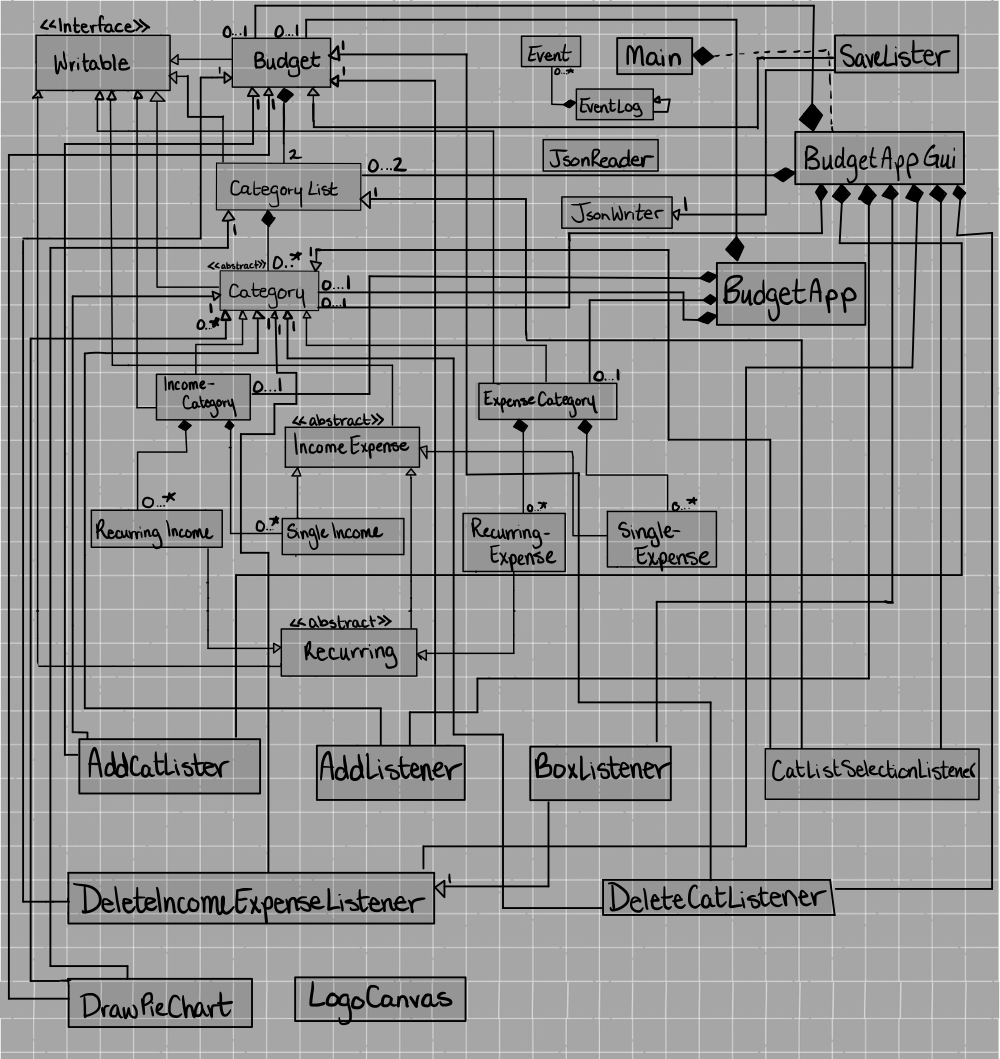 <<Interface>>
Writable
0...1
0...1
Budget
1
1
1
1
1
Event
0...*
EventLog
Main
SaveLister
JsonReader
JsonWriter
1
BudgetAppGui
2
0...2
Category List
1
1
<<abstract>>
0...*
1
Category
0...1
0...1
1
0...*
1
1
BudgetApp
Income-
Category
0...1
Expense Category
0...1
<<abstract>>
Income Expense
0...*
Recurring Income
0...*
Single Income
0...*
Recurring-
Expense
0...*
Single-
Expense
<<abstract>>
Recurring
AddCatLister
AddListener
BoxListener
CatListSelectionListener
DeleteIncomeExpenseListener
1
DeleteCatListener
DrawPieChart
LogoCanvas